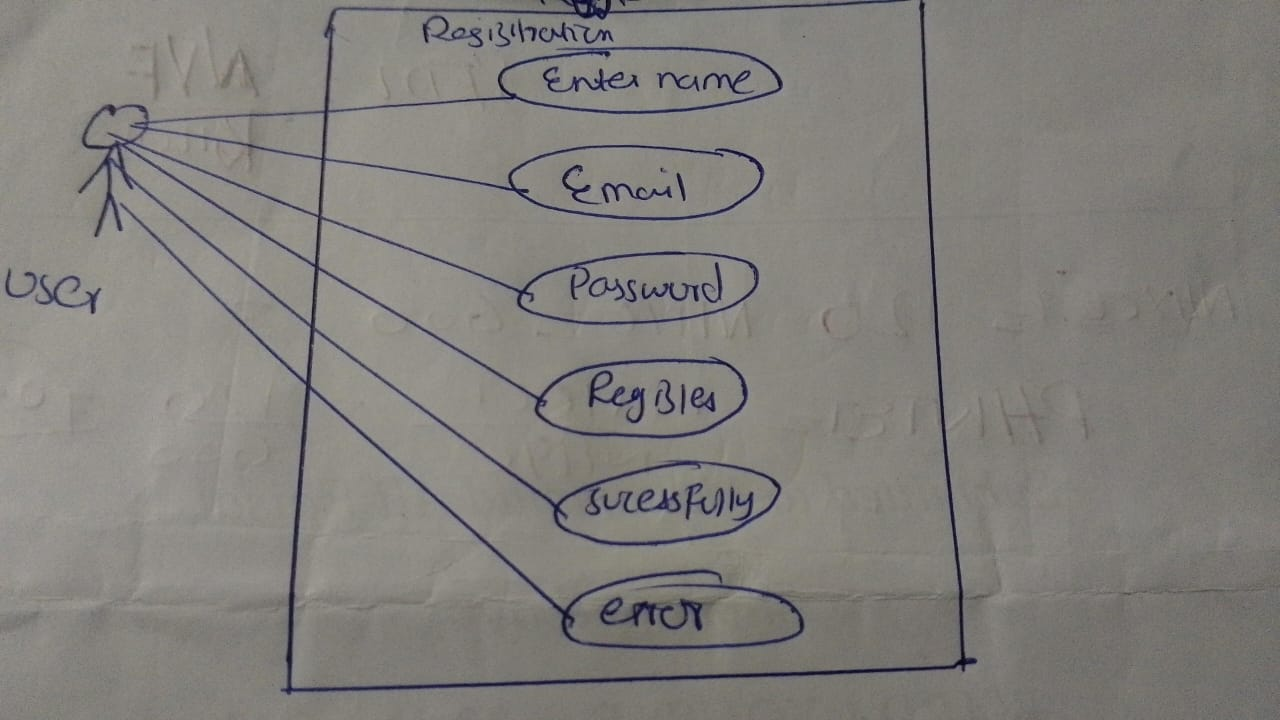 Registration
Enter name
Email
User
Password
Register
sucessfully
error